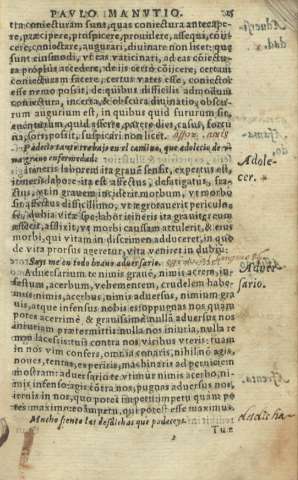 PAVLO MANVTIO.
ta coniecturam sunt, quas coniectura antecape-
re, præcipere, prospicere, prouidere, assequi, coiis-
cere, coniectare, augurari, diuinare non licet: quæ
sunt eiusmodi, vt eas vaticinari, ad eas
propius accedere, de iis certo coijcere, certam
coniecturam facere, certus vates esse, coniector
esse nemo possit, de quibus difficilis admodum
coniectura, incerta, & obscura diuinatio, obscu-
rum augurium est, in quibus quid futurum sit,
euenturum, quid afferre, parere dies, casus, fortu-
na, sors possit, suspicari non licet.
Padecio tanto trabajo en el camino, que adolecio de
grano enfermedad.
itineris laborem ita grauem sensit, expertus est,
itineris labore ita est affectus, defatigatus, frac-
tus, vt in grauem inciderit morbum, vt morbo
affectus difficillimo, vt ægrotauerit periculo
se, dubia vitæ spe: labor itineris ita grauiter eum
affecit, afflixit, vt morbi caussam attulerit, & eius
morbi, qui vitam in discrimen adduceret, in quo
de vita prorsus ageretur, vita veniret in dubiū.
Suys me en todo brauo aduersario.
Aduersarium te nimis grauē, nimis acrem, in-
festum, acerbum, vehementem, crudelem habe-
mus: nimis acerbus nimis aduersus, nimium gra-
uis, atque infensus nobis es: oppugnas nos quam
potes acerrimè & grauissimè: nulla aduersus nos
iniuriam prætermittis: nulla nos iniuria, nulla re
non lacessis: tuis contra nos viribus vteris: tuam
in nos vim confers, omnia conaris, nihil nō agis,
moues, tentas, experiris, machinaris ad perniciem
nostram: aduersario te vtimur nimis acerbo, ni-
mis infenso: agis cōtra nos, pugnas aduersus nos,
ruis in nos, quo potes impetu: impetu quam po-
tes maximo: eo impetu, qui potest esse maximus.
Mucho siento las desdichas que padeceys.
Tum
Adole-
cer.
Aduer-
sario.
desdicha